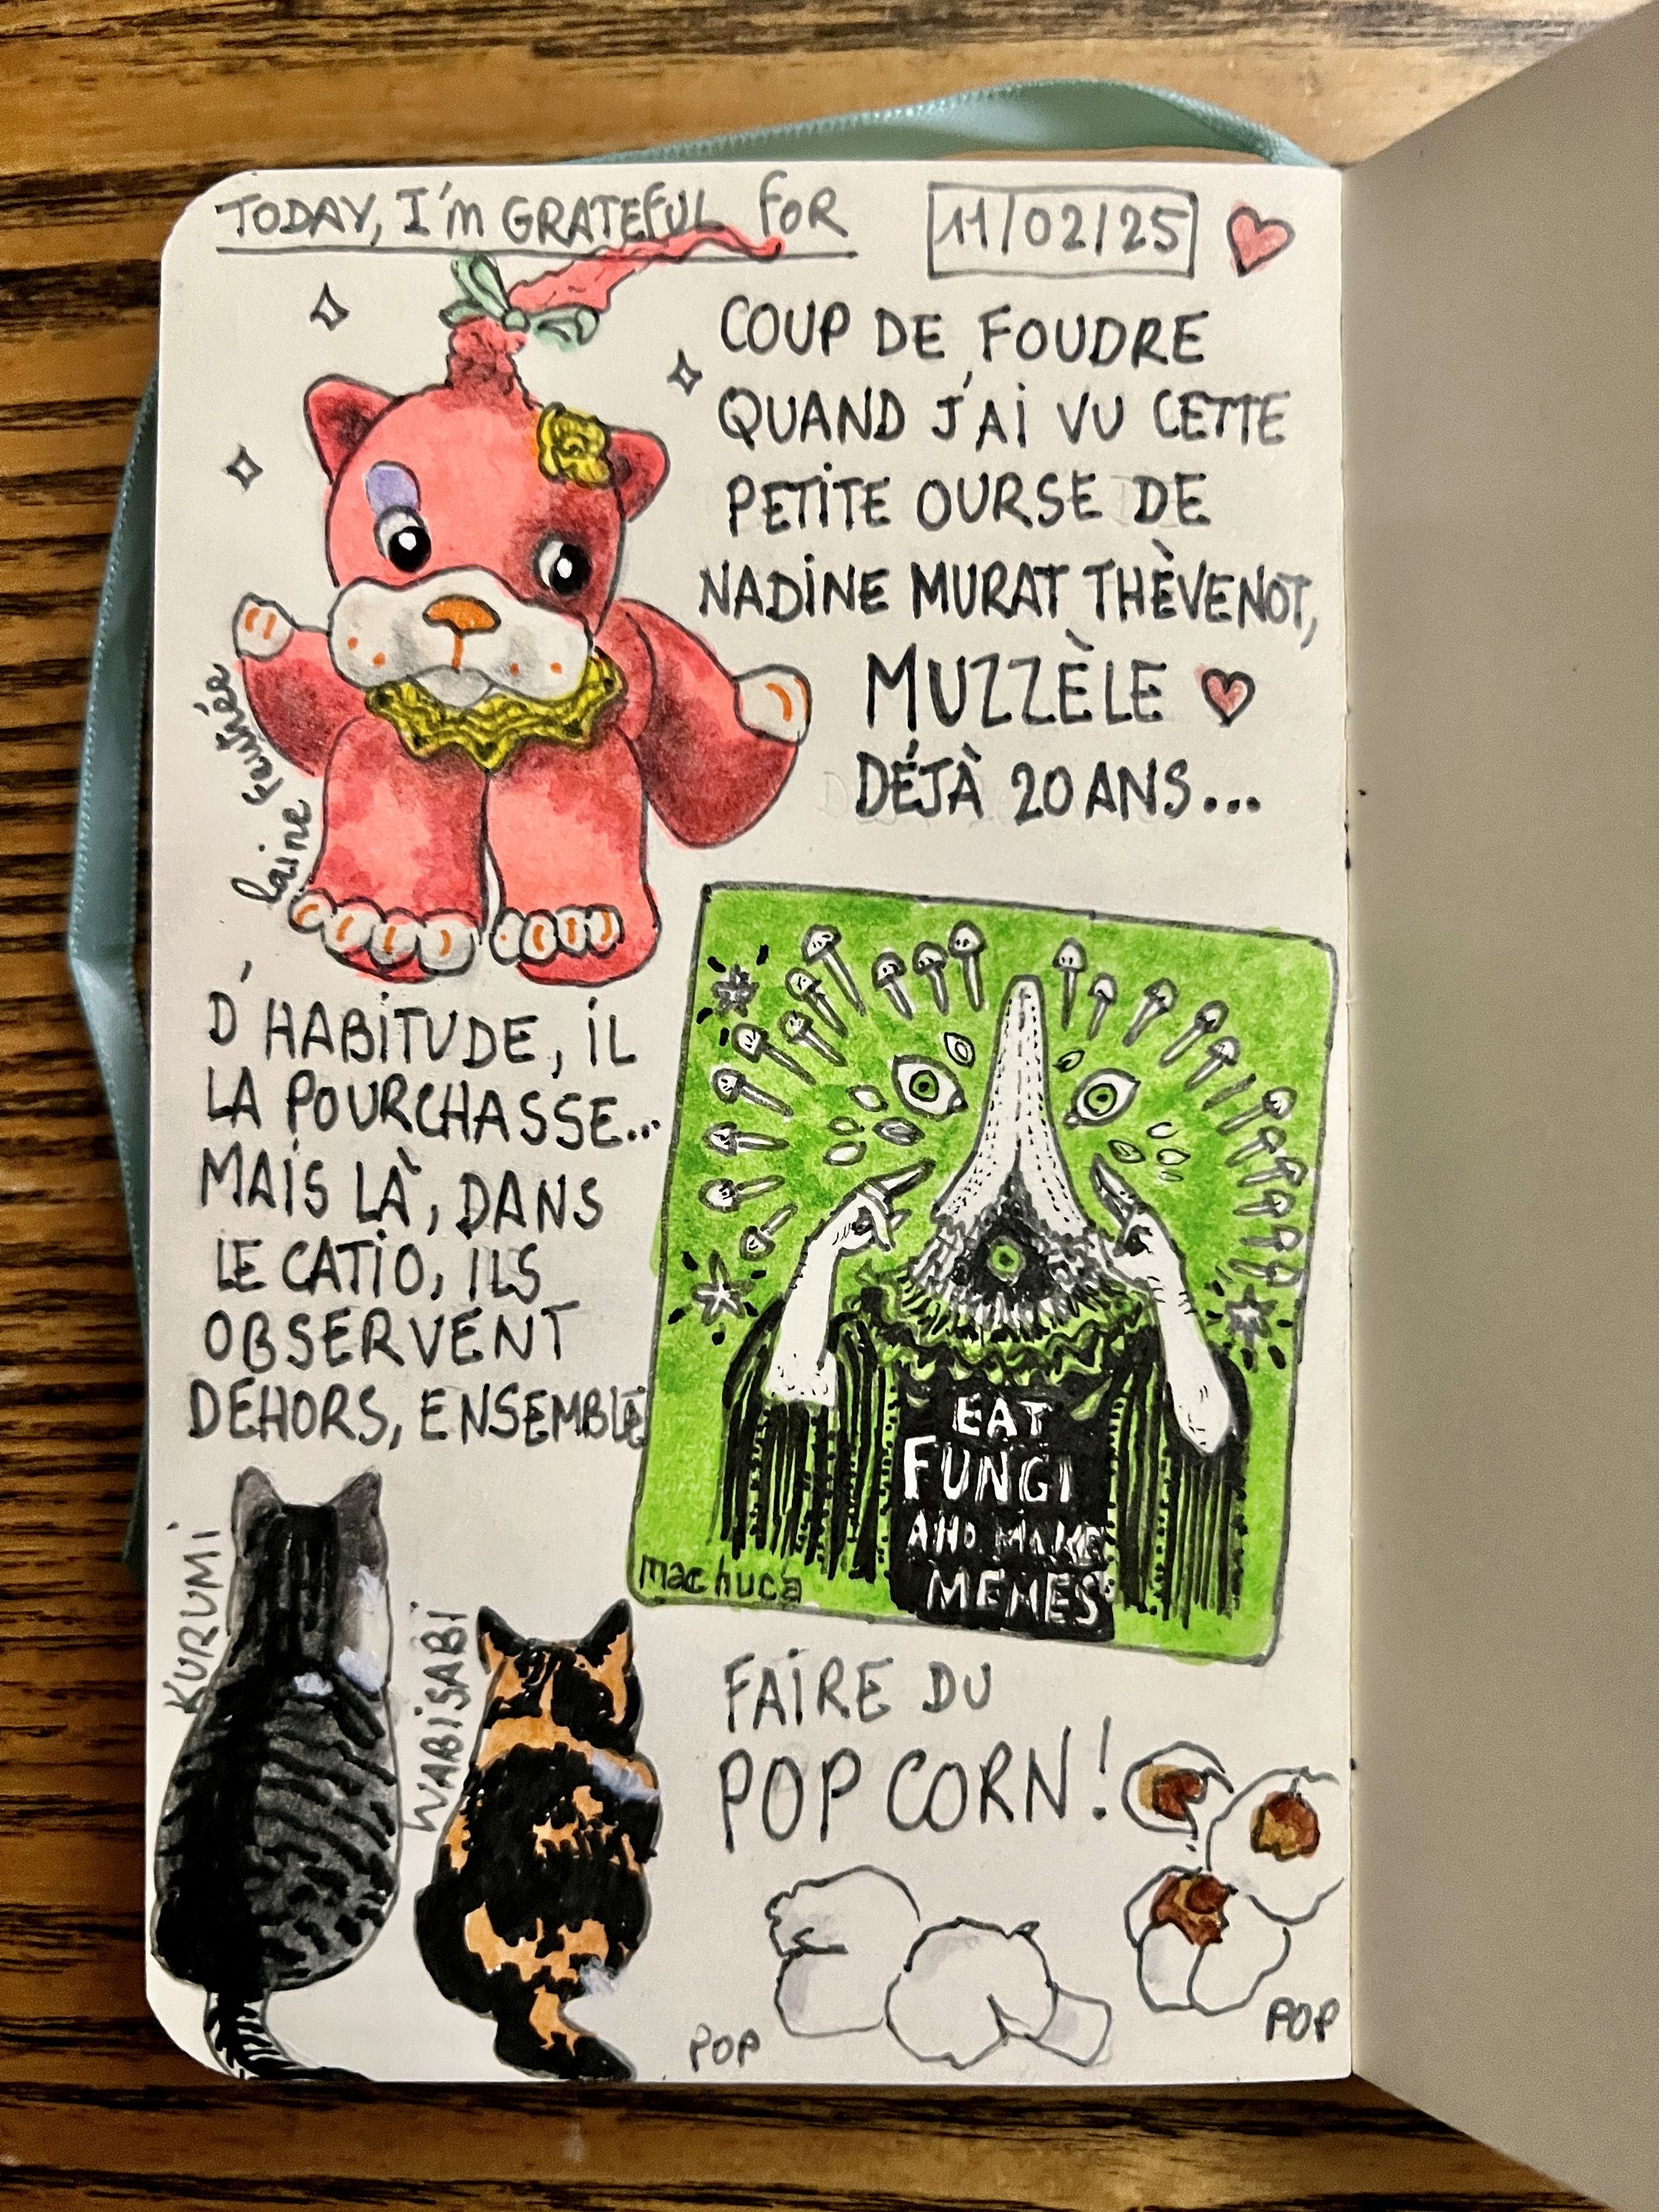 TODAY, I'm GRATEFUL FOR
11/02/25
COUP DE FOUDRE
QUAND J'Ai VU CETTE
PETITE OURSE DE
NADiNE MURAT THÈVENOT,
MUZZÈLE
DÉJÀ 20 ANS...
laine feutrée
D'HABiTUDE, iL
LA POURCHASSE...
MAiS LÀ, DANS
LE CATiO, iLS
OBSERVENT
DEHORS, ENSEMBLE
KURUMi
WABiSABi
EAT
FUNGI
AND MAKE
MEMES
machuca
FAiRE DU
POP CORN!
POP
POP